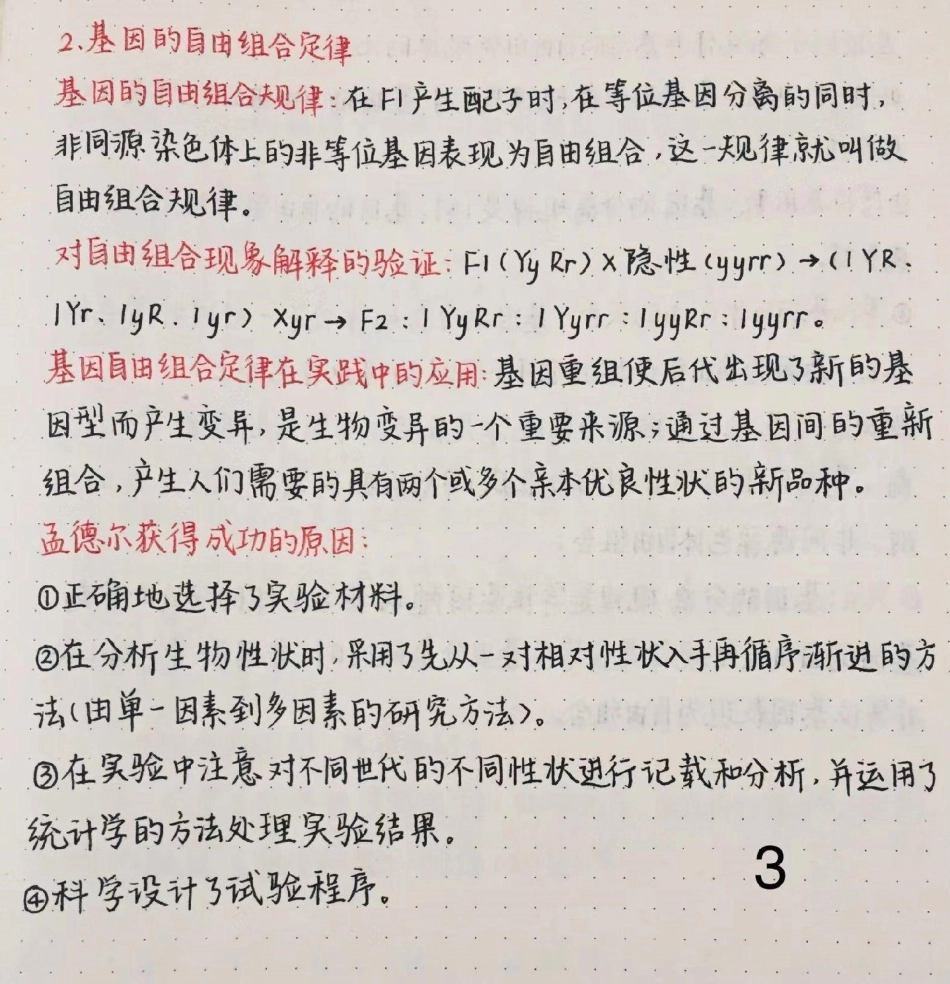 2.基因的自由组合定律
基因的自由组合规律:在F1产生配子时,在等位基因分离的同时,
非同源染色体上的非等位基因表现为自由组合,这一规律就叫做
自由组合规律。
对自由组合现象解释的验证:F1(YyRr)×隐性(yyrr)→(1YR、
1Yr、1yR、1yr)×yr→F2:1YyRr:1Yyrr:1yyRr:1yyrr。
基因自由组合定律在实践中的应用:基因重组使后代出现了新的基
因型而产生变异,是生物变异的一个重要来源;通过基因间的重新
组合,产生人们需要的具有两个或多个亲本优良性状的新品种。
孟德尔获得成功的原因:
①正确地选择了实验材料。
②在分析生物性状时,采用了先从一对相对性状入手再循序渐进的方
法(由单一因素到多因素的研究方法)。
③在实验中注意对不同世代的不同性状进行记载和分析,并运用了
统计学的方法处理实验结果。
④科学设计了试验程序。
3